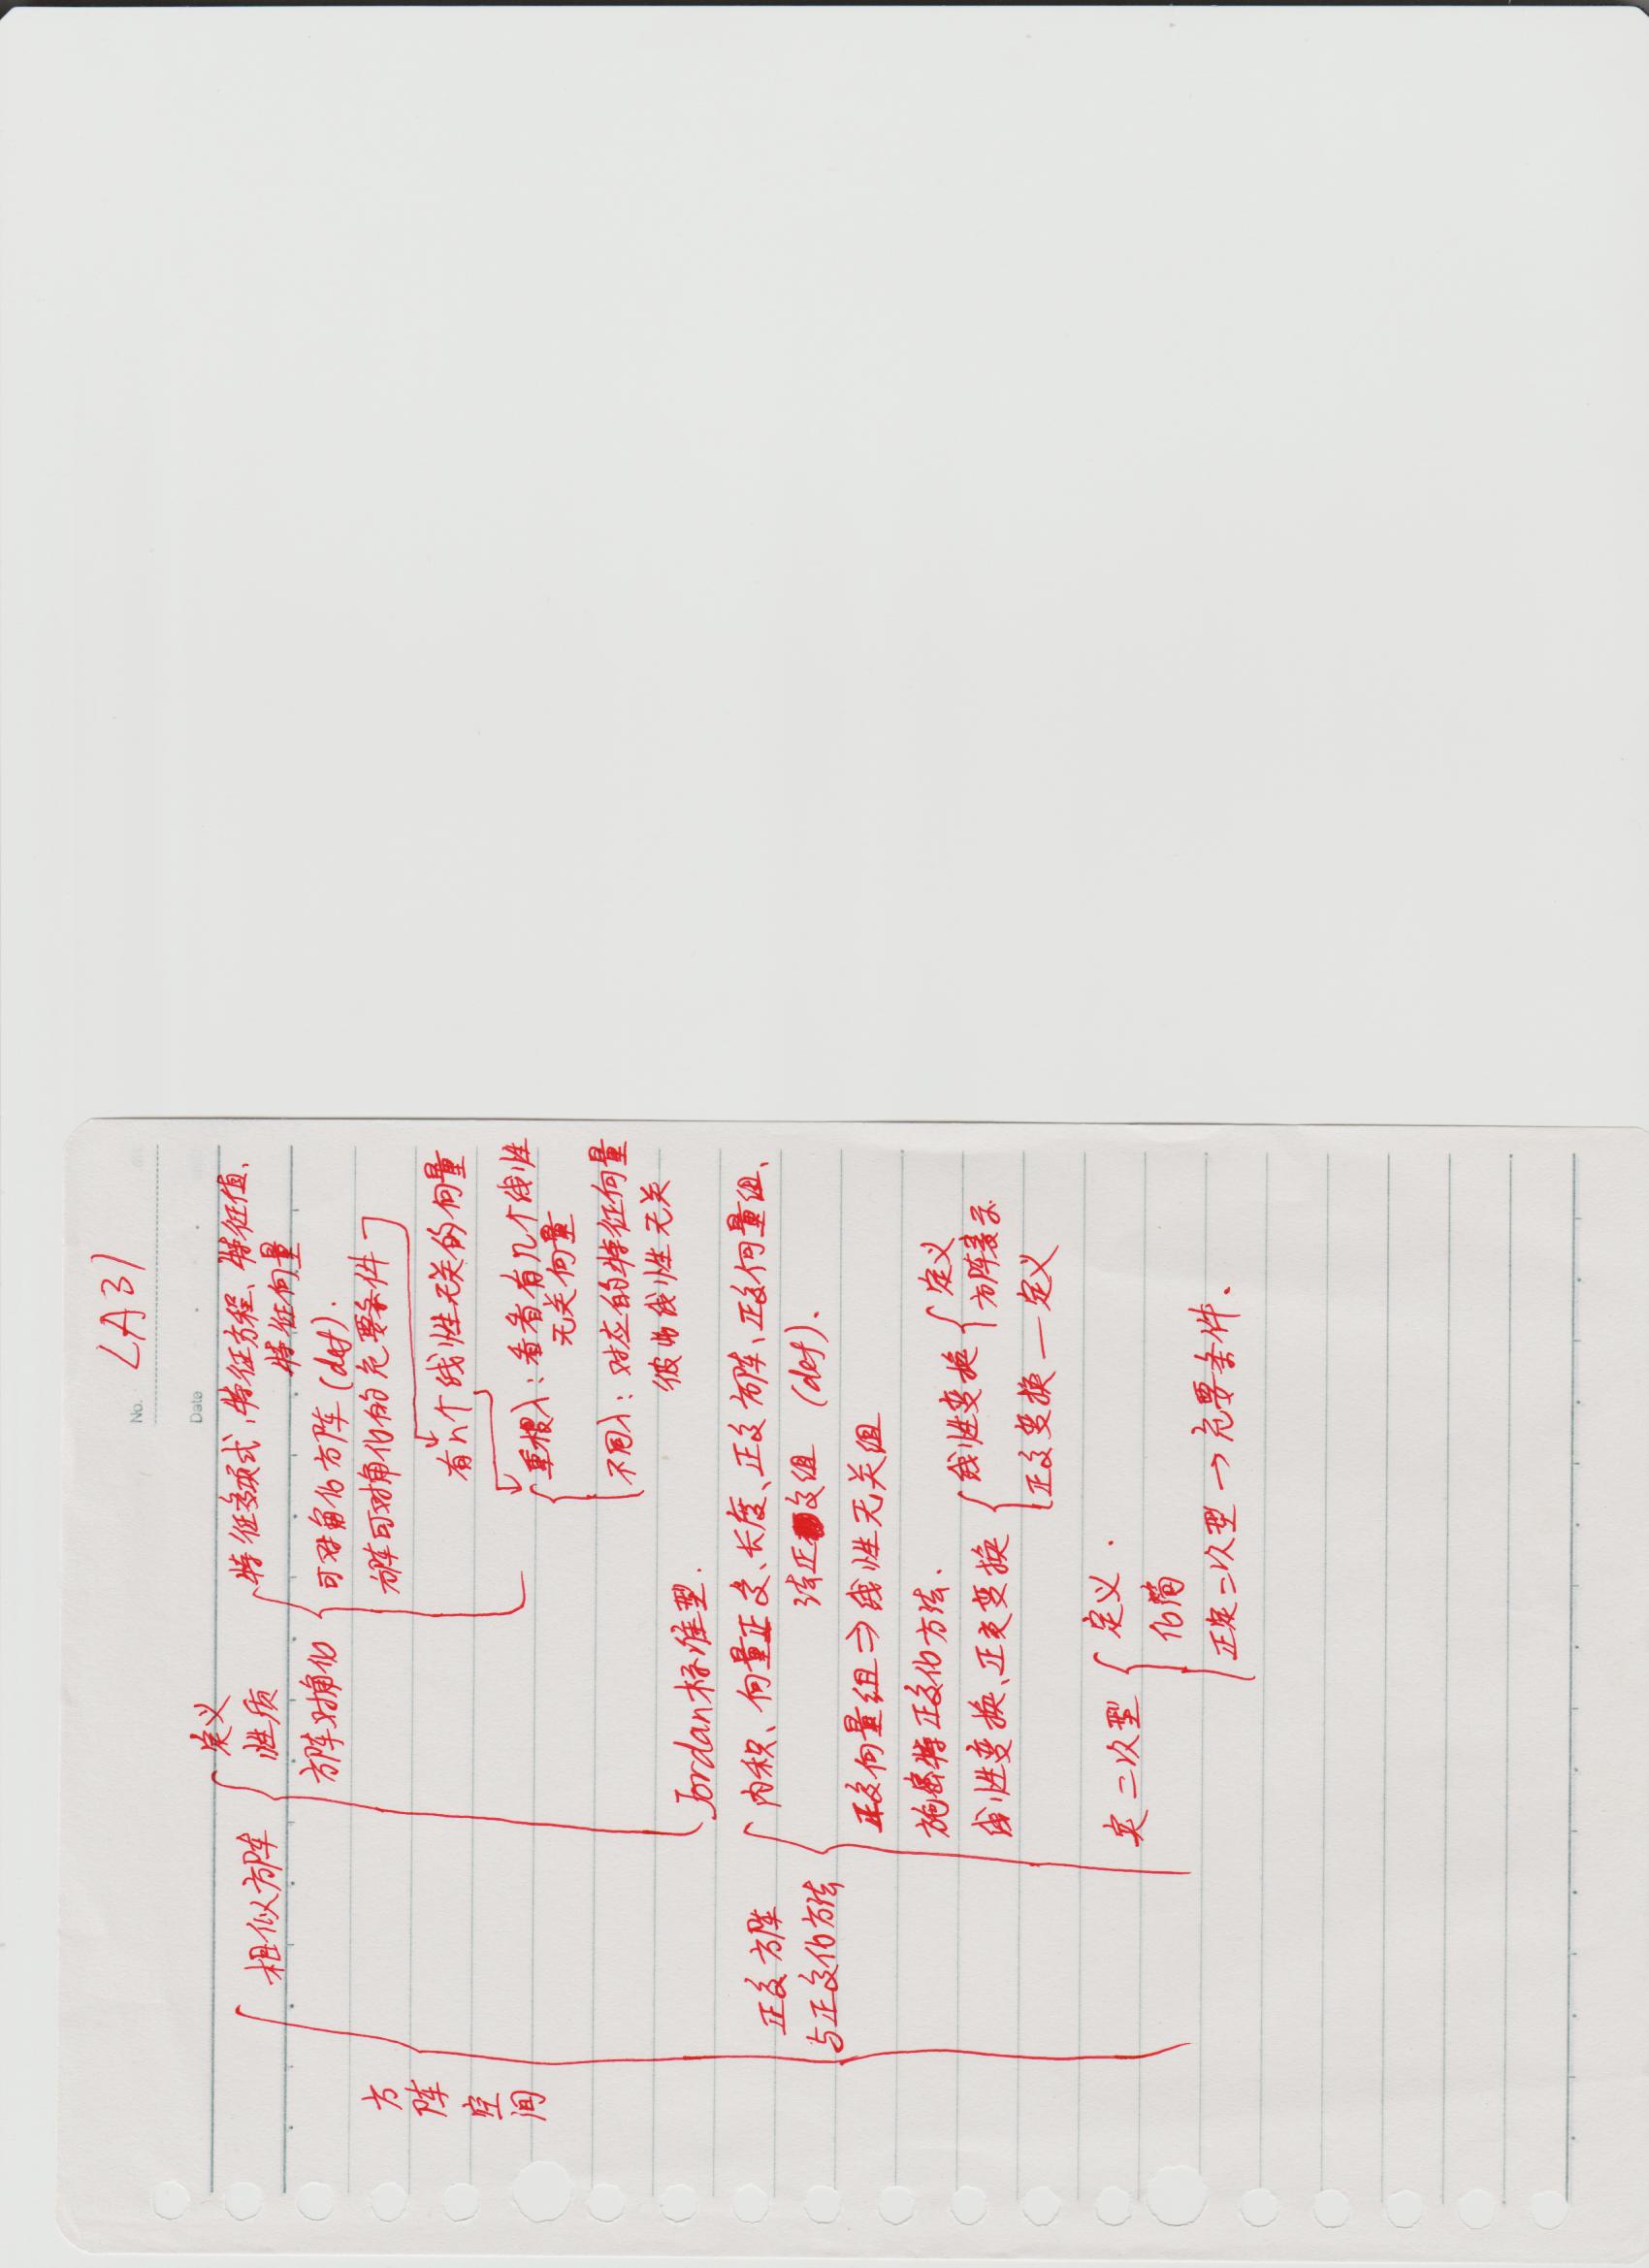 No. LA31
Date
定义
相似方阵
性质
特征多项式、特征方程、特征值、
特征向量
方阵对角化
可对角化方阵(def).
方阵可对角化的充要条件
方阵空间
有n个线性无关的向量
重根λ:看看有几个线性
无关向量
不同λ:对应的特征向量
彼此线性无关
Jordan标准型.
正交方阵
与正交化方法
内积、向量正交、长度、正交方阵、正交向量组、
法正交组 (def).
正交向量组⇒线性无关组
施密特正交化方法.
线性变换、正交变换
线性变换
定义
方阵表示
正交变换—定义
实二次型
定义.
化简
正定二次型→充要条件.